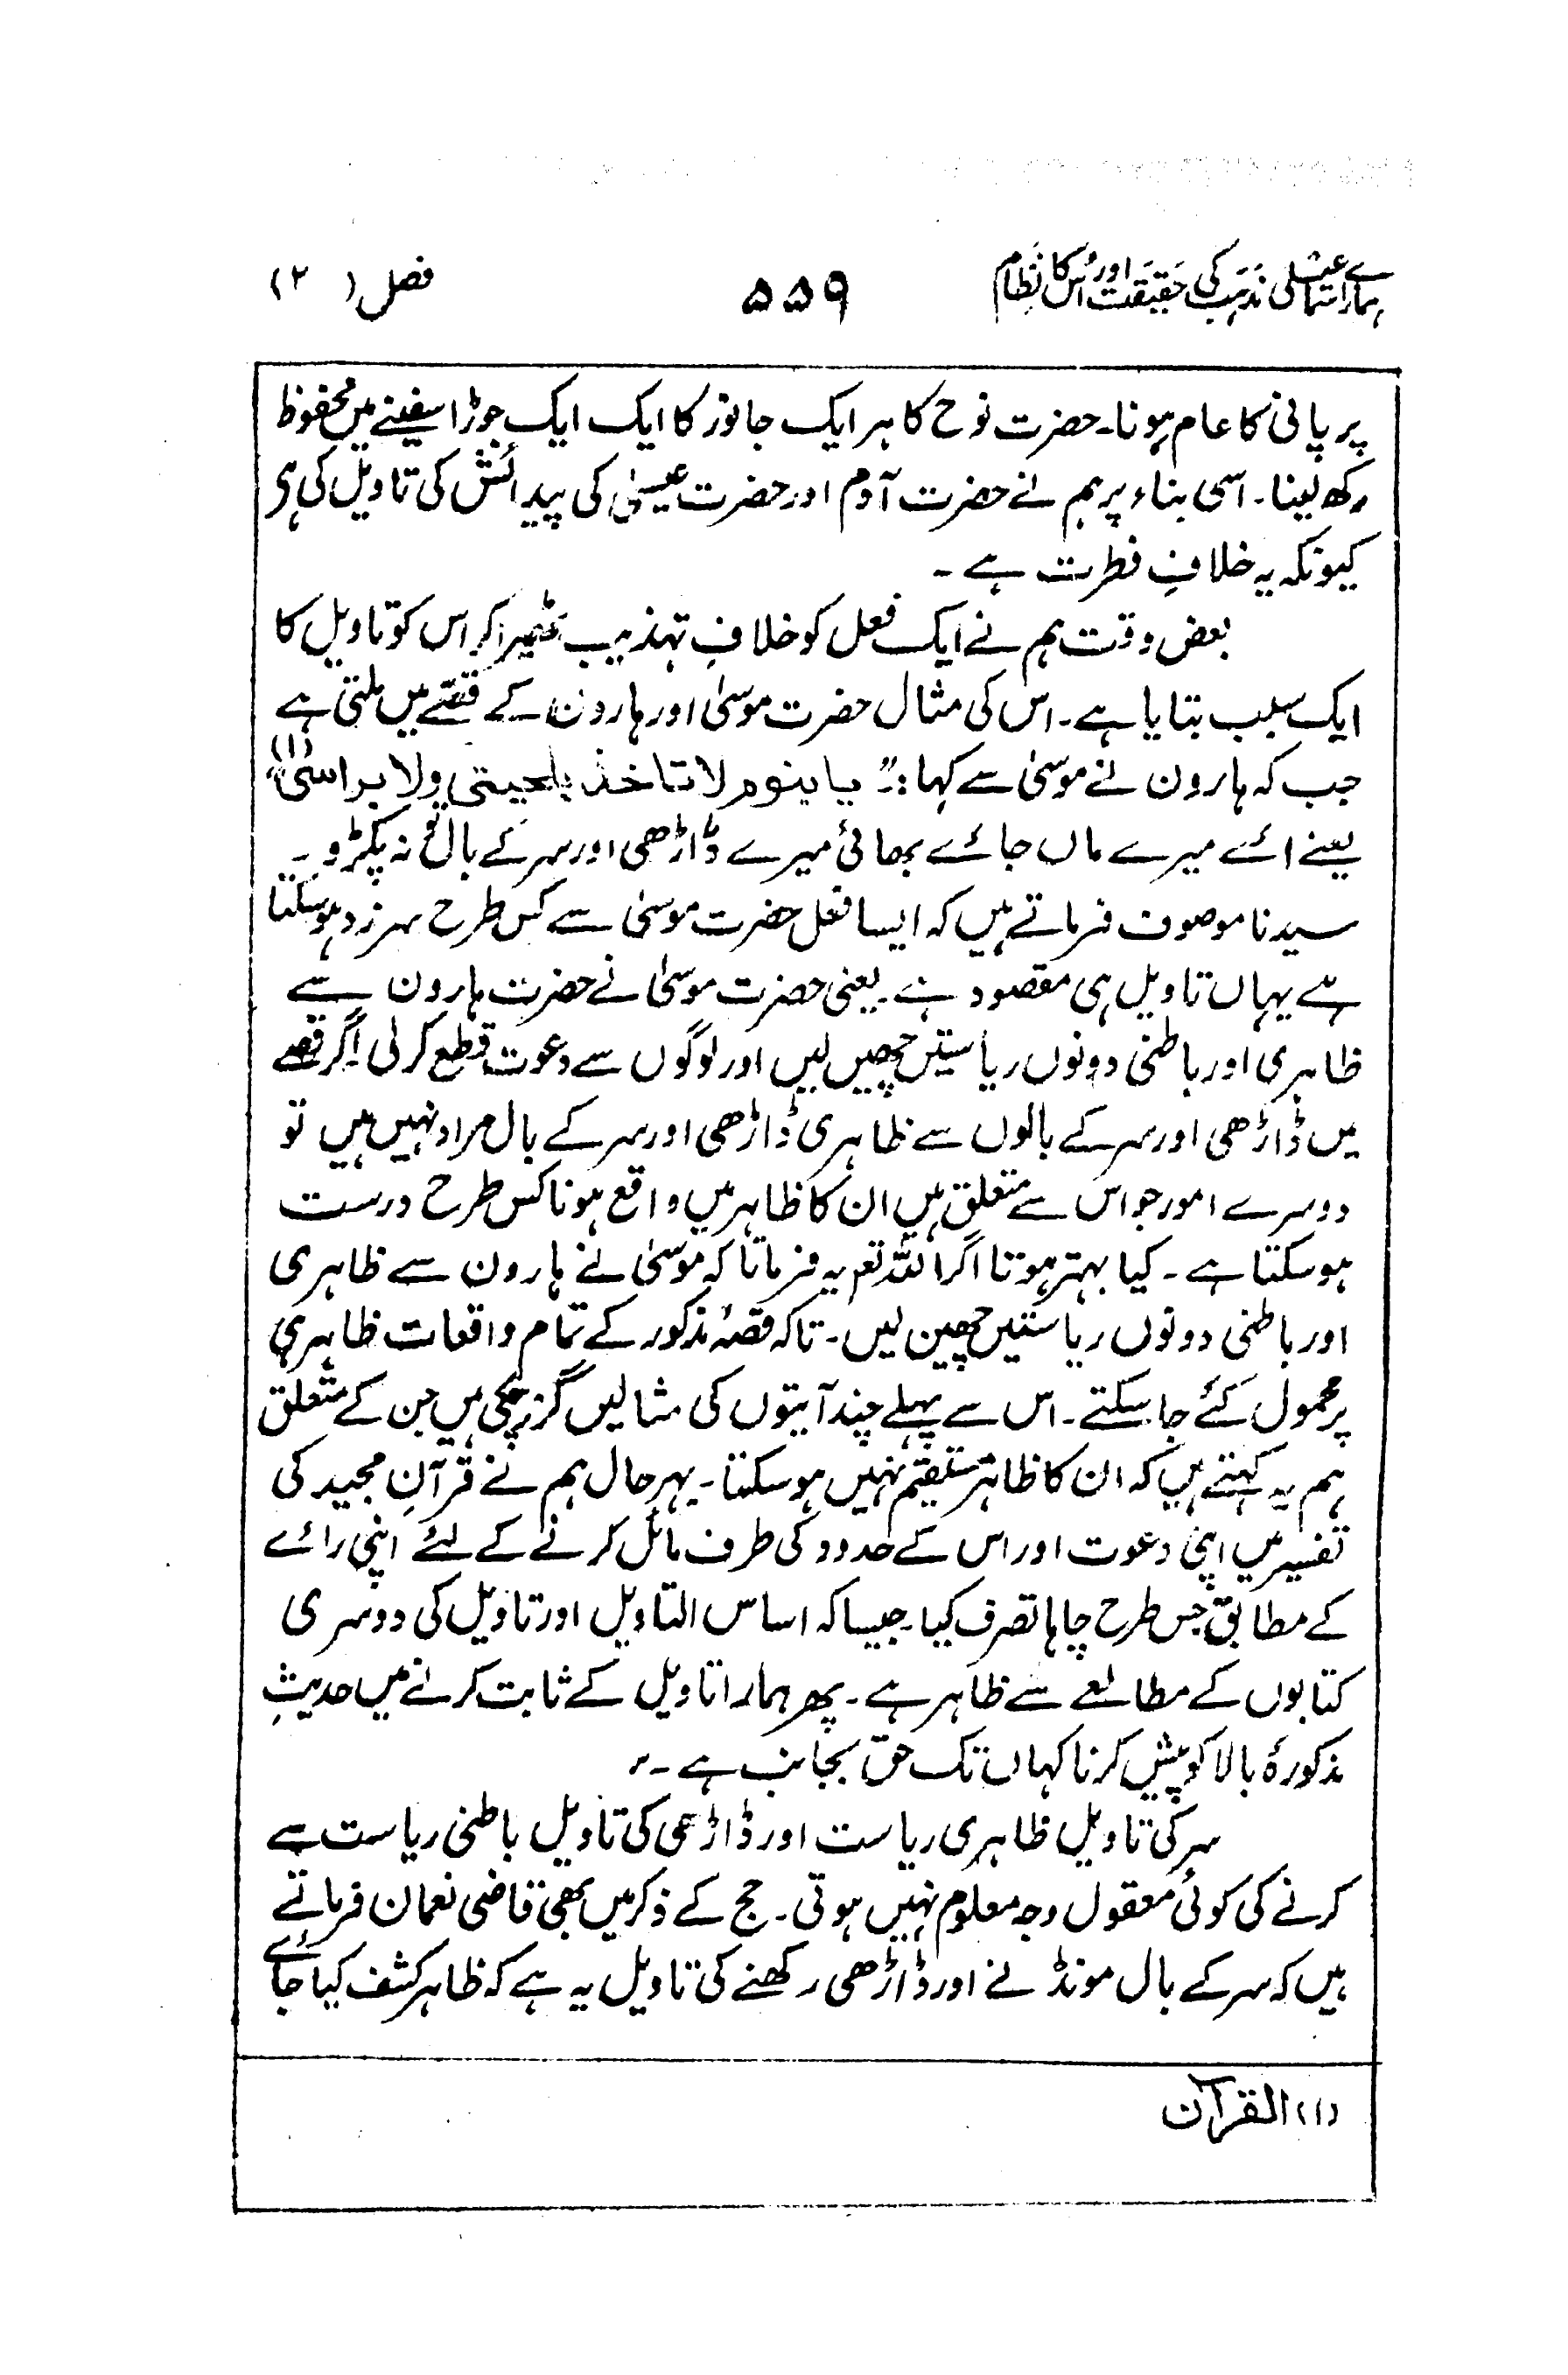 ہمارے اسماعیلی مذہب کی حقیقت اور اس کا نظام ۵۵۹ فصل (۲)
پر پانی کا عام ہونا۔ حضرت نوح کا ہر ایک جانور کا ایک ایک جوڑا سفینے میں محفوظ
رکھ لینا۔ اسی بناء پر ہم نے حضرت آدم اور حضرت عیسیٰ کی پیدائش کی تاویل کی ہی
کیونکہ یہ خلافِ فطرت ہے۔
بعض وقت ہم نے ایک فعل کو خلافِ تہذیب ٹھیرا کر اس کو تاویل کا
ایک سبب بتایا ہے۔ اس کی مثال حضرت موسیٰ اور ہارون کے قصّے میں ملتی ہے
جب کہ ہارون نے موسیٰ سے کہا :۔ "یا بنوم لا تاخذ بلحیتی ولا براسی" (۱)
یعنے ائے میرے ماں جائے بھائی میرے ڈاڑھی اور سر کے بال تو نہ پکڑو۔
سیدنا موصوف فرماتے ہیں کہ ایسا فعل حضرت موسیٰ سے کس طرح سرزد ہوسکتا
ہے یہاں تاویل ہی مقصود ہے۔ یعنی حضرت موسیٰ نے حضرت ہارون سے
ظاہری اور باطنی دونوں ریاستیں چھین لیں اور لوگوں سے دعوت قطع کرلی۔ اگر قصے
میں ڈاڑھی اور سر کے بالوں سے ظاہری ڈاڑھی اور سر کے بال مراد نہیں ہیں تو
دوسرے امور جو اس سے متعلق ہیں ان کا ظاہر میں واقع ہونا کس طرح درست
ہوسکتا ہے۔ کیا بہتر ہوتا اگر اللہ تعہ یہ فرماتا کہ موسیٰ نے ہارون سے ظاہری
اور باطنی دونوں ریاستیں چھین لیں۔ تاکہ قصۂ مذکور کے تمام واقعات ظاہری
پر محمول کئے جا سکتے۔ اس سے پہلے چند آیتوں کی مثالیں گزر چکی ہیں جن کے متعلق
ہم یہ کہتے ہیں کہ ان کا ظاہر مستقیم نہیں ہوسکتا۔ بہر حال ہم نے قرآنِ مجید کی
تفسیر میں اپنی دعوت اور اس کے حدود کی طرف مائل کرنے کے لئے اپنی رائے
کے مطابق جس طرح چاہا تصرف کیا۔ جیسا کہ اساس التاویل اور تاویل کی دوسری
کتابوں کے مطالعے سے ظاہر ہے۔ پھر ہمارا تاویل کے ثابت کرنے میں حدیثِ
مذکورۂ بالا کو پیش کرنا کہاں تک حق بجانب ہے۔
سر کی تاویل ظاہری ریاست اور ڈاڑھی کی تاویل باطنی ریاست سے
کرنے کی کوئی معقول وجہ معلوم نہیں ہوتی۔ حج کے ذکر میں بھی قاضی نعمان فرماتے
ہیں کہ سر کے بال مونڈنے اور ڈاڑھی رکھنے کی تاویل یہ ہے کہ ظاہر کشف کیا جائے
(۱) القرآن